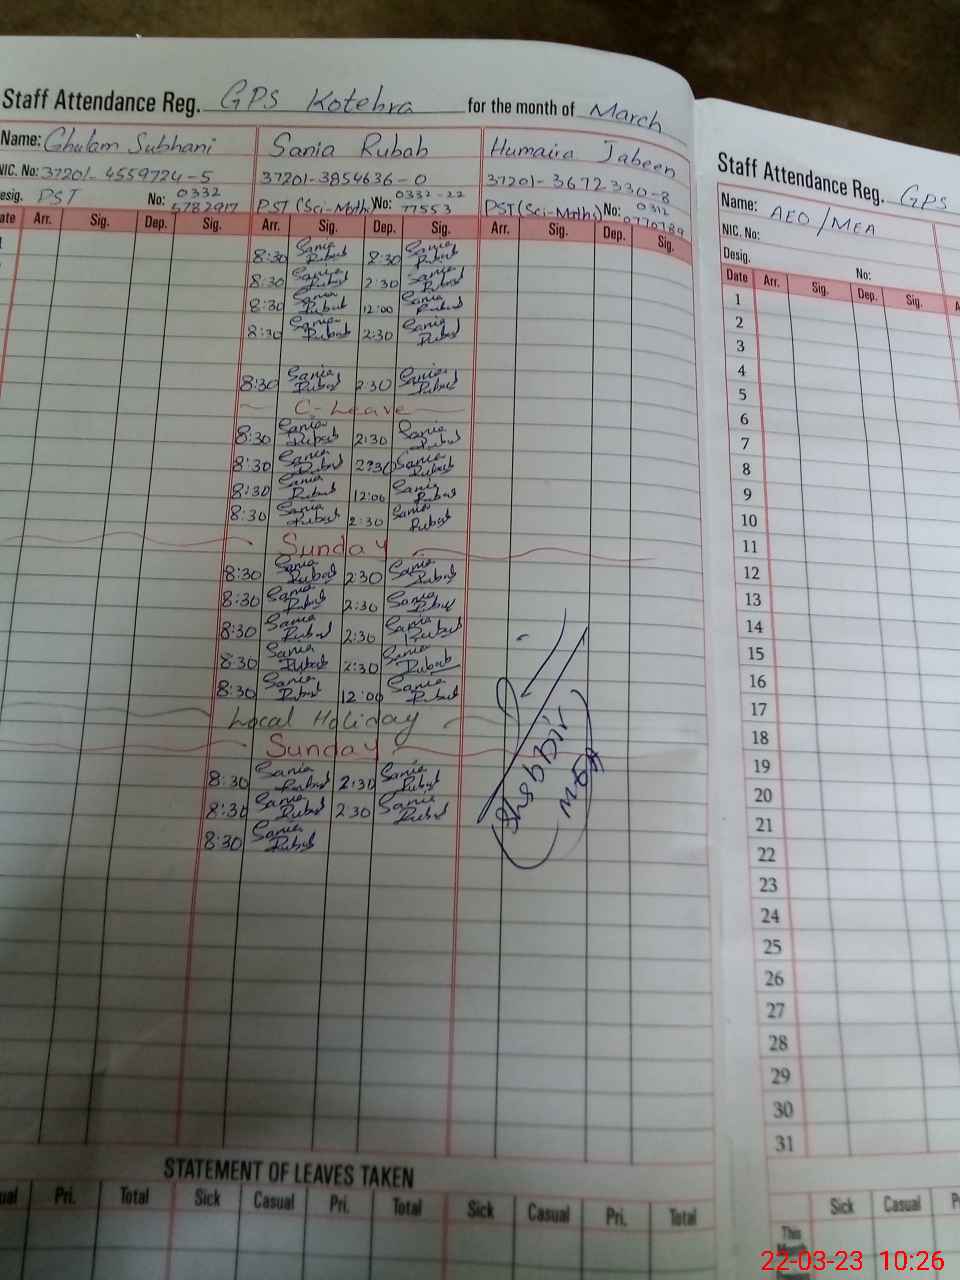 Staff Attendance Reg. GPS Kotehra for the month of March
Name: Ghulam Subhani Sania Rubab Humaira Jabeen
NIC. No: 37201-4559724-5 37201-3854636-0 37201-3672330-8
PST No: 0332 5782917 PST (Sci-Math) No: 0332-22 77553 PST (Sci-Math) No: 0312 0770789
Arr. Sig. Dep. Sig. Arr. Sig. Dep. Sig. Arr. Sig. Dep. Sig.
8:30 Sania Rubab 2:30 Sania Rubab
8:30 Sania Rubab 2:30 Sania Rubab
8:30 Sania Rubab 12:00 Sania Rubab
8:30 Sania Rubab 2:30 Sania Rubab
8:30 Sania Rubab 2:30 Sania Rubab
C-Leave
8:30 Sania Rubab 2:30 Sania Rubab
8:30 Sania Rubab 2:30 Sania Rubab
8:30 Sania Rubab 12:00 Sania Rubab
8:30 Sania Rubab 2:30 Sania Rubab
Sunday
8:30 Sania Rubab 2:30 Sania Rubab
8:30 Sania Rubab 2:30 Sania Rubab
8:30 Sania Rubab 2:30 Sania Rubab
8:30 Sania Rubab 2:30 Sania Rubab
8:30 Sania Rubab 12:00 Sania Rubab
Local Holiday
Sunday
8:30 Sania Rubab 2:30 Sania Rubab
8:30 Sania Rubab 2:30 Sania Rubab
8:30 Sania Rubab
Shabbir
MEA
STATEMENT OF LEAVES TAKEN
Pri. Total Sick Casual Pri. Total Sick Casual Pri. Total
Staff Attendance Reg. GPS
Name: AEO/MEA
NIC. No:
Desig. No:
Date Arr. Sig. Dep. Sig.
1
2
3
4
5
6
7
8
9
10
11
12
13
14
15
16
17
18
19
20
21
22
23
24
25
26
27
28
29
30
31
Sick Casual
This Month
22-03-23 10:26